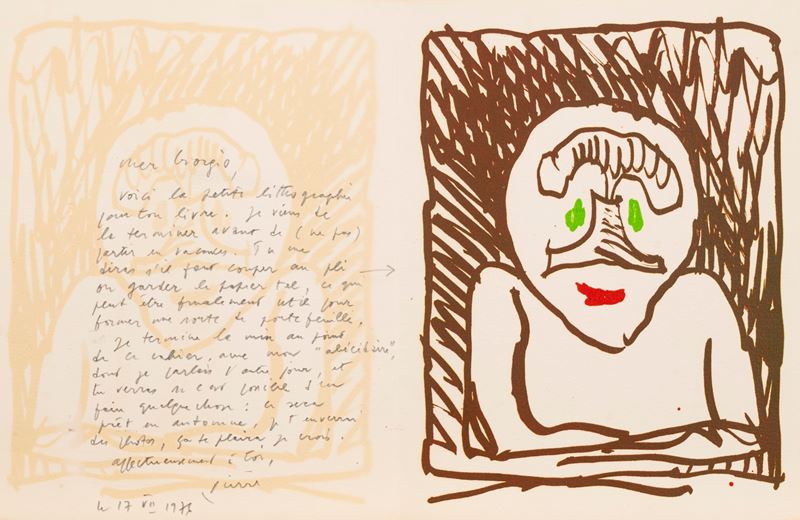 cher Giorgio,
voici la petite lithographie
pour ton livre. Je viens de
la terminer avant de (ne pas)
partir en vacances. Tu me
diras s'il faut couper au pli →
ou garder le papier tel, ce qui
peut être finalement utile pour
former une sorte de portefeuille.
Je termine la mise au point
de ce cahier, avec mon "abécédaire",
dont je parlais l'autre jour, et
tu verras si c'est possible d'en
faire quelque chose : ce sera
prêt en automne, je t'enverrai
des photos, ça te plaira, je crois.
affectueusement à toi,
Pierre
le 17 VII 1976